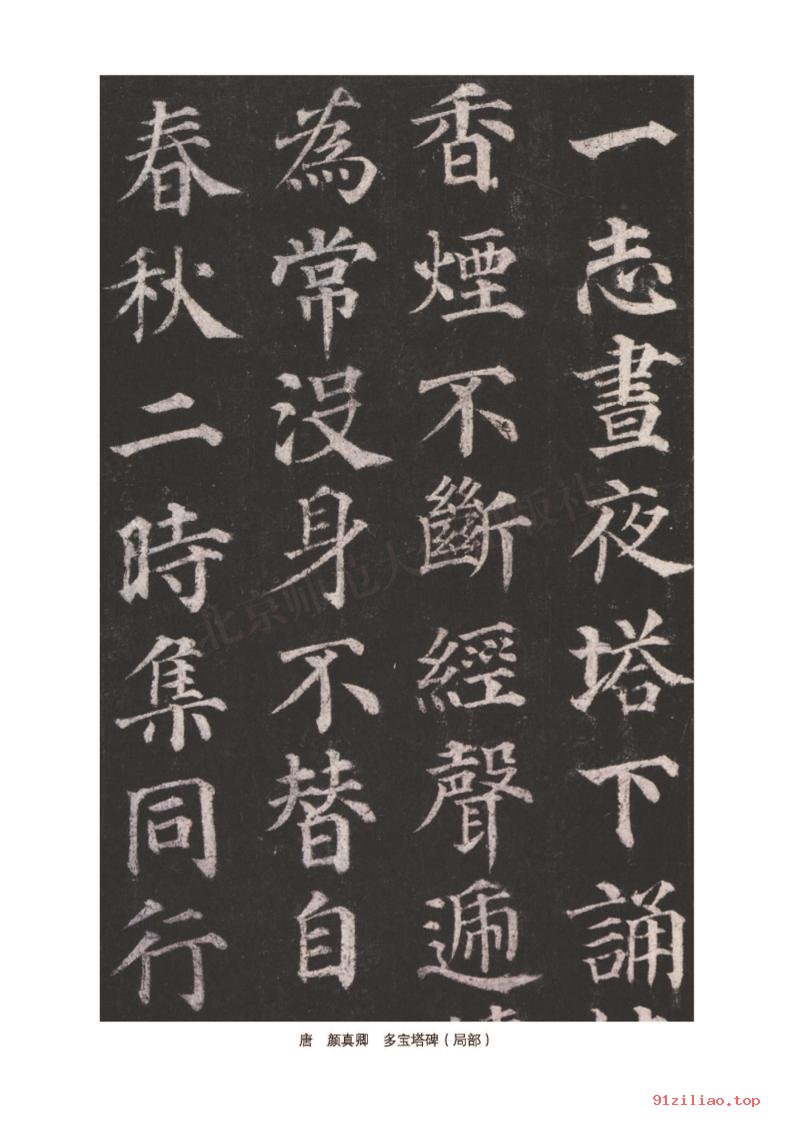 一志晝夜塔下誦
香煙不斷經聲遞
為常没身不替自
春秋二時集同行
北京师范大
版社
唐 颜真卿 多宝塔碑（局部）
91ziliao.top